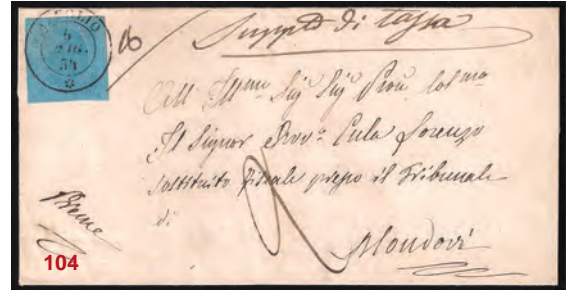 6
54
Supp.to di tassa
All' Ill.mo Sig. Sig.
Il Signor Avv.o Eula Lorenzo
Sostituito Fiscale presso il Tribunale
di
Mondovì
104